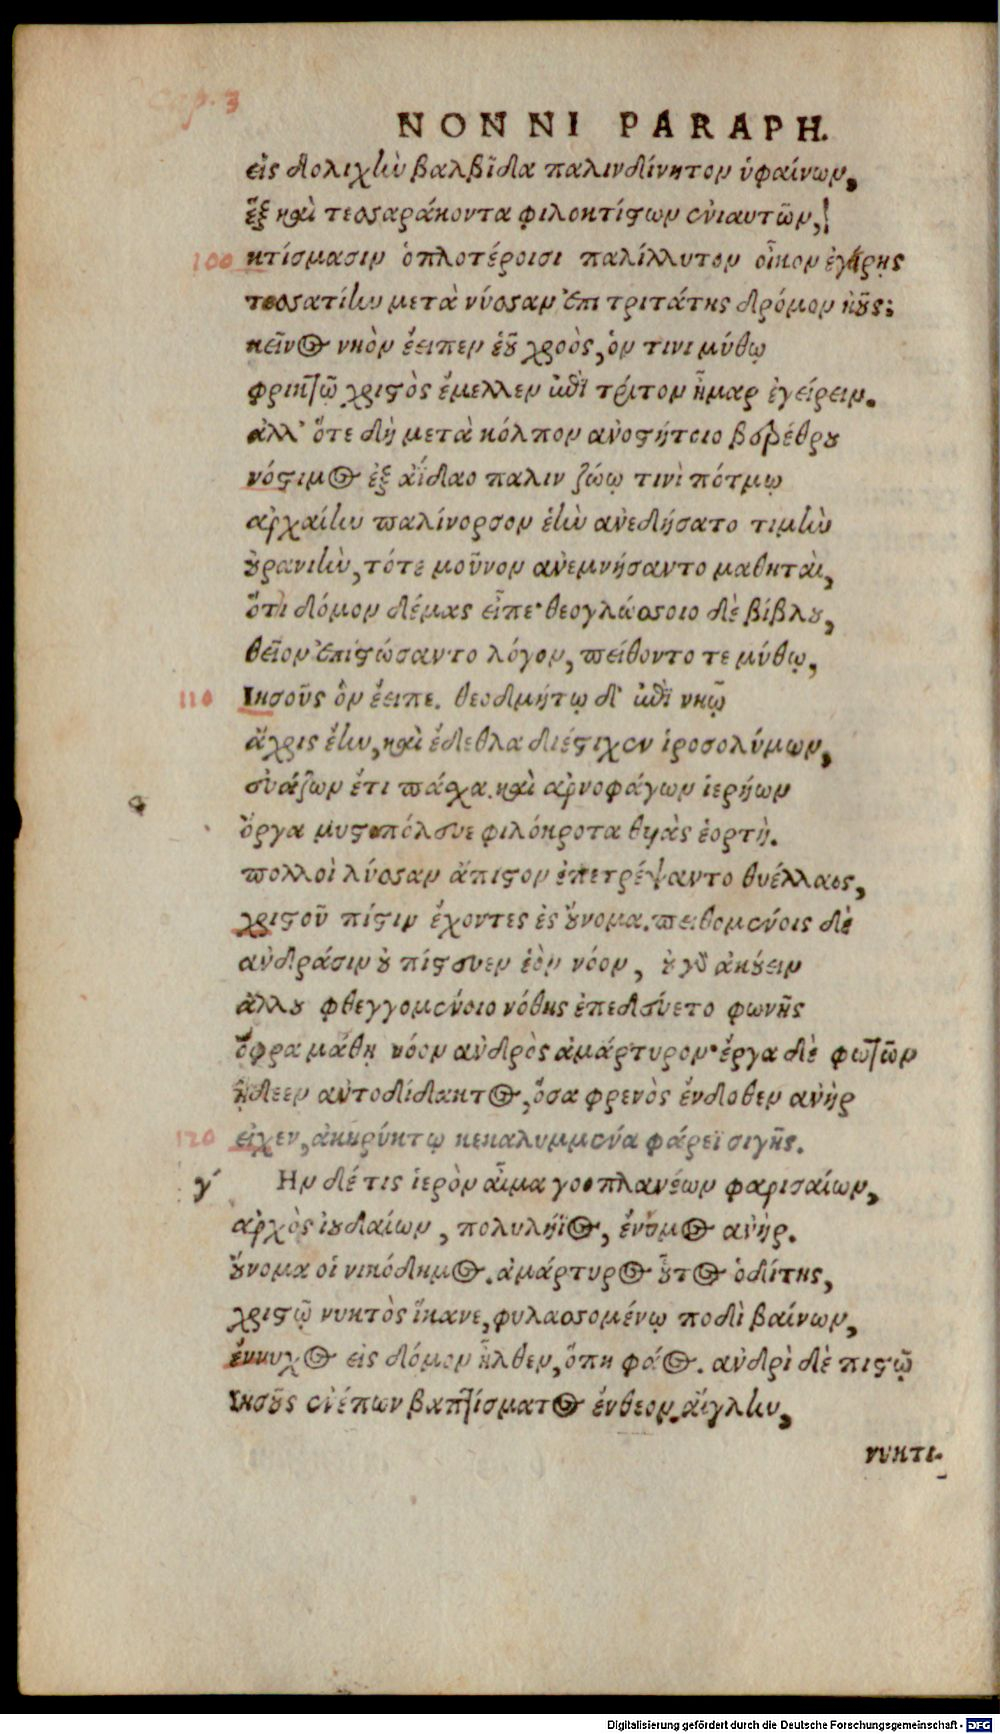 Cap. 3
NONNI PARAPH.
εἰς δολιχὴν βαλβῖδα παλινδίνητον ὑφαίνων,
ἓξ καὶ τεσσαράκοντα φιλοκτίστων ἐνιαυτῶν,
100 κτίσμασιν ὁπλοτέροισι παλίλλυτον οἶκον ἐγείρῃς
τεσσατίην μετὰ νύσσαν ἐπι τριτάτης δρόμον ἠοῦς;
κεῖνος νηὸν ἔειπεν ἑοῦ χροὸς, ὅν τινι μύθῳ
φρικτῷ χριστὸς ἔμελλεν ἐπὶ τρίτον ἦμαρ ἐγείρειν.
ἀλλ' ὅτε δὴ μετὰ κόλπον ἀνοστήτοιο βερέθρου
νόστιμος ἐξ ἀΐδαο παλιν ζώῳ τινὶ πότμῳ
ἀρχαίην παλίνορσον ἑὴν ἀνεδήσατο τιμὴν
οὐρανιὴν, τότε μοῦνον ἀνεμνήσαντο μαθηταὶ,
ὅτι δόμον δέμας εἶπε· θεογλώσσοιο δὲ βίβλου,
θεῖον ἐπιστώσαντο λόγον, πείθοντο τε μύθῳ,
110 Ἰησοῦς ὃν ἔειπε. θεοδμήτῳ δ' ἐπὶ νηῷ
ἄχρις ἔην, καὶ ἔδεθλα διέστιχεν ἱροσολύμων,
συάζων ἔτι πάσχα. καὶ ἀρνοφάγων ἱερήων
ὄργα μυστοπόλευε φιλόκροτα θυὰς ἑορτὴ.
πολλοὶ λύσσαν ἄπιστον ἐπετρέψαντο θυέλλαις,
χριστοῦ πίστιν ἔχοντες ἐς οὔνομα. πειθομένοις δὲ
ἀνδράσιν οὐ πίστευεν ἑὸν νόον, οὐ γὰρ ἀκούειν
ἄλλου φθεγγομένοιο νόθης ἐπεδεύετο φωνῆς
ὄφρα μάθῃ νόον ἀνδρὸς ἀμάρτυρον· ἔργα δὲ φωτῶν
ᾔδεεν αὐτοδίδακτος, ὅσα φρενὸς ἔνδοθεν ἀνὴρ
120 εἶχεν, ἀκηρύκτῳ κεκαλυμμένα φάρεϊ σιγῆς.
γ´ Ην δέ τις ἱερὸν αἷμα νοοπλανέων φαρισαίων,
ἀρχὸς ἰουδαίων, πολυλήϊος, ἔννομος ἀνὴρ.
οὔνομα οἱ νικόδημος. ἀμάρτυρος οὗτος ὁδίτης,
χριστῷ νυκτὸς ἵκανε, φυλασσομένῳ ποδὶ βαίνων,
ἔννυχος εἰς δόμον ἦλθεν, ὅπη φάος. ἀνδρὶ δὲ πιστῷ
Ἰησοῦς ἐνέπων βαπτίσματος ἔνθεον αἴγλην,
νυκτι-
Digitalisierung gefördert durch die Deutsche Forschungsgemeinschaft - DFG